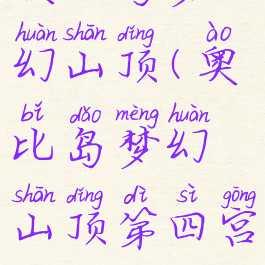 huàn shān dǐng ào
幻山顶(奥
bǐ dǎo mèng huàn
比岛梦幻
shān dǐng dì sì gōng
山顶第四宫